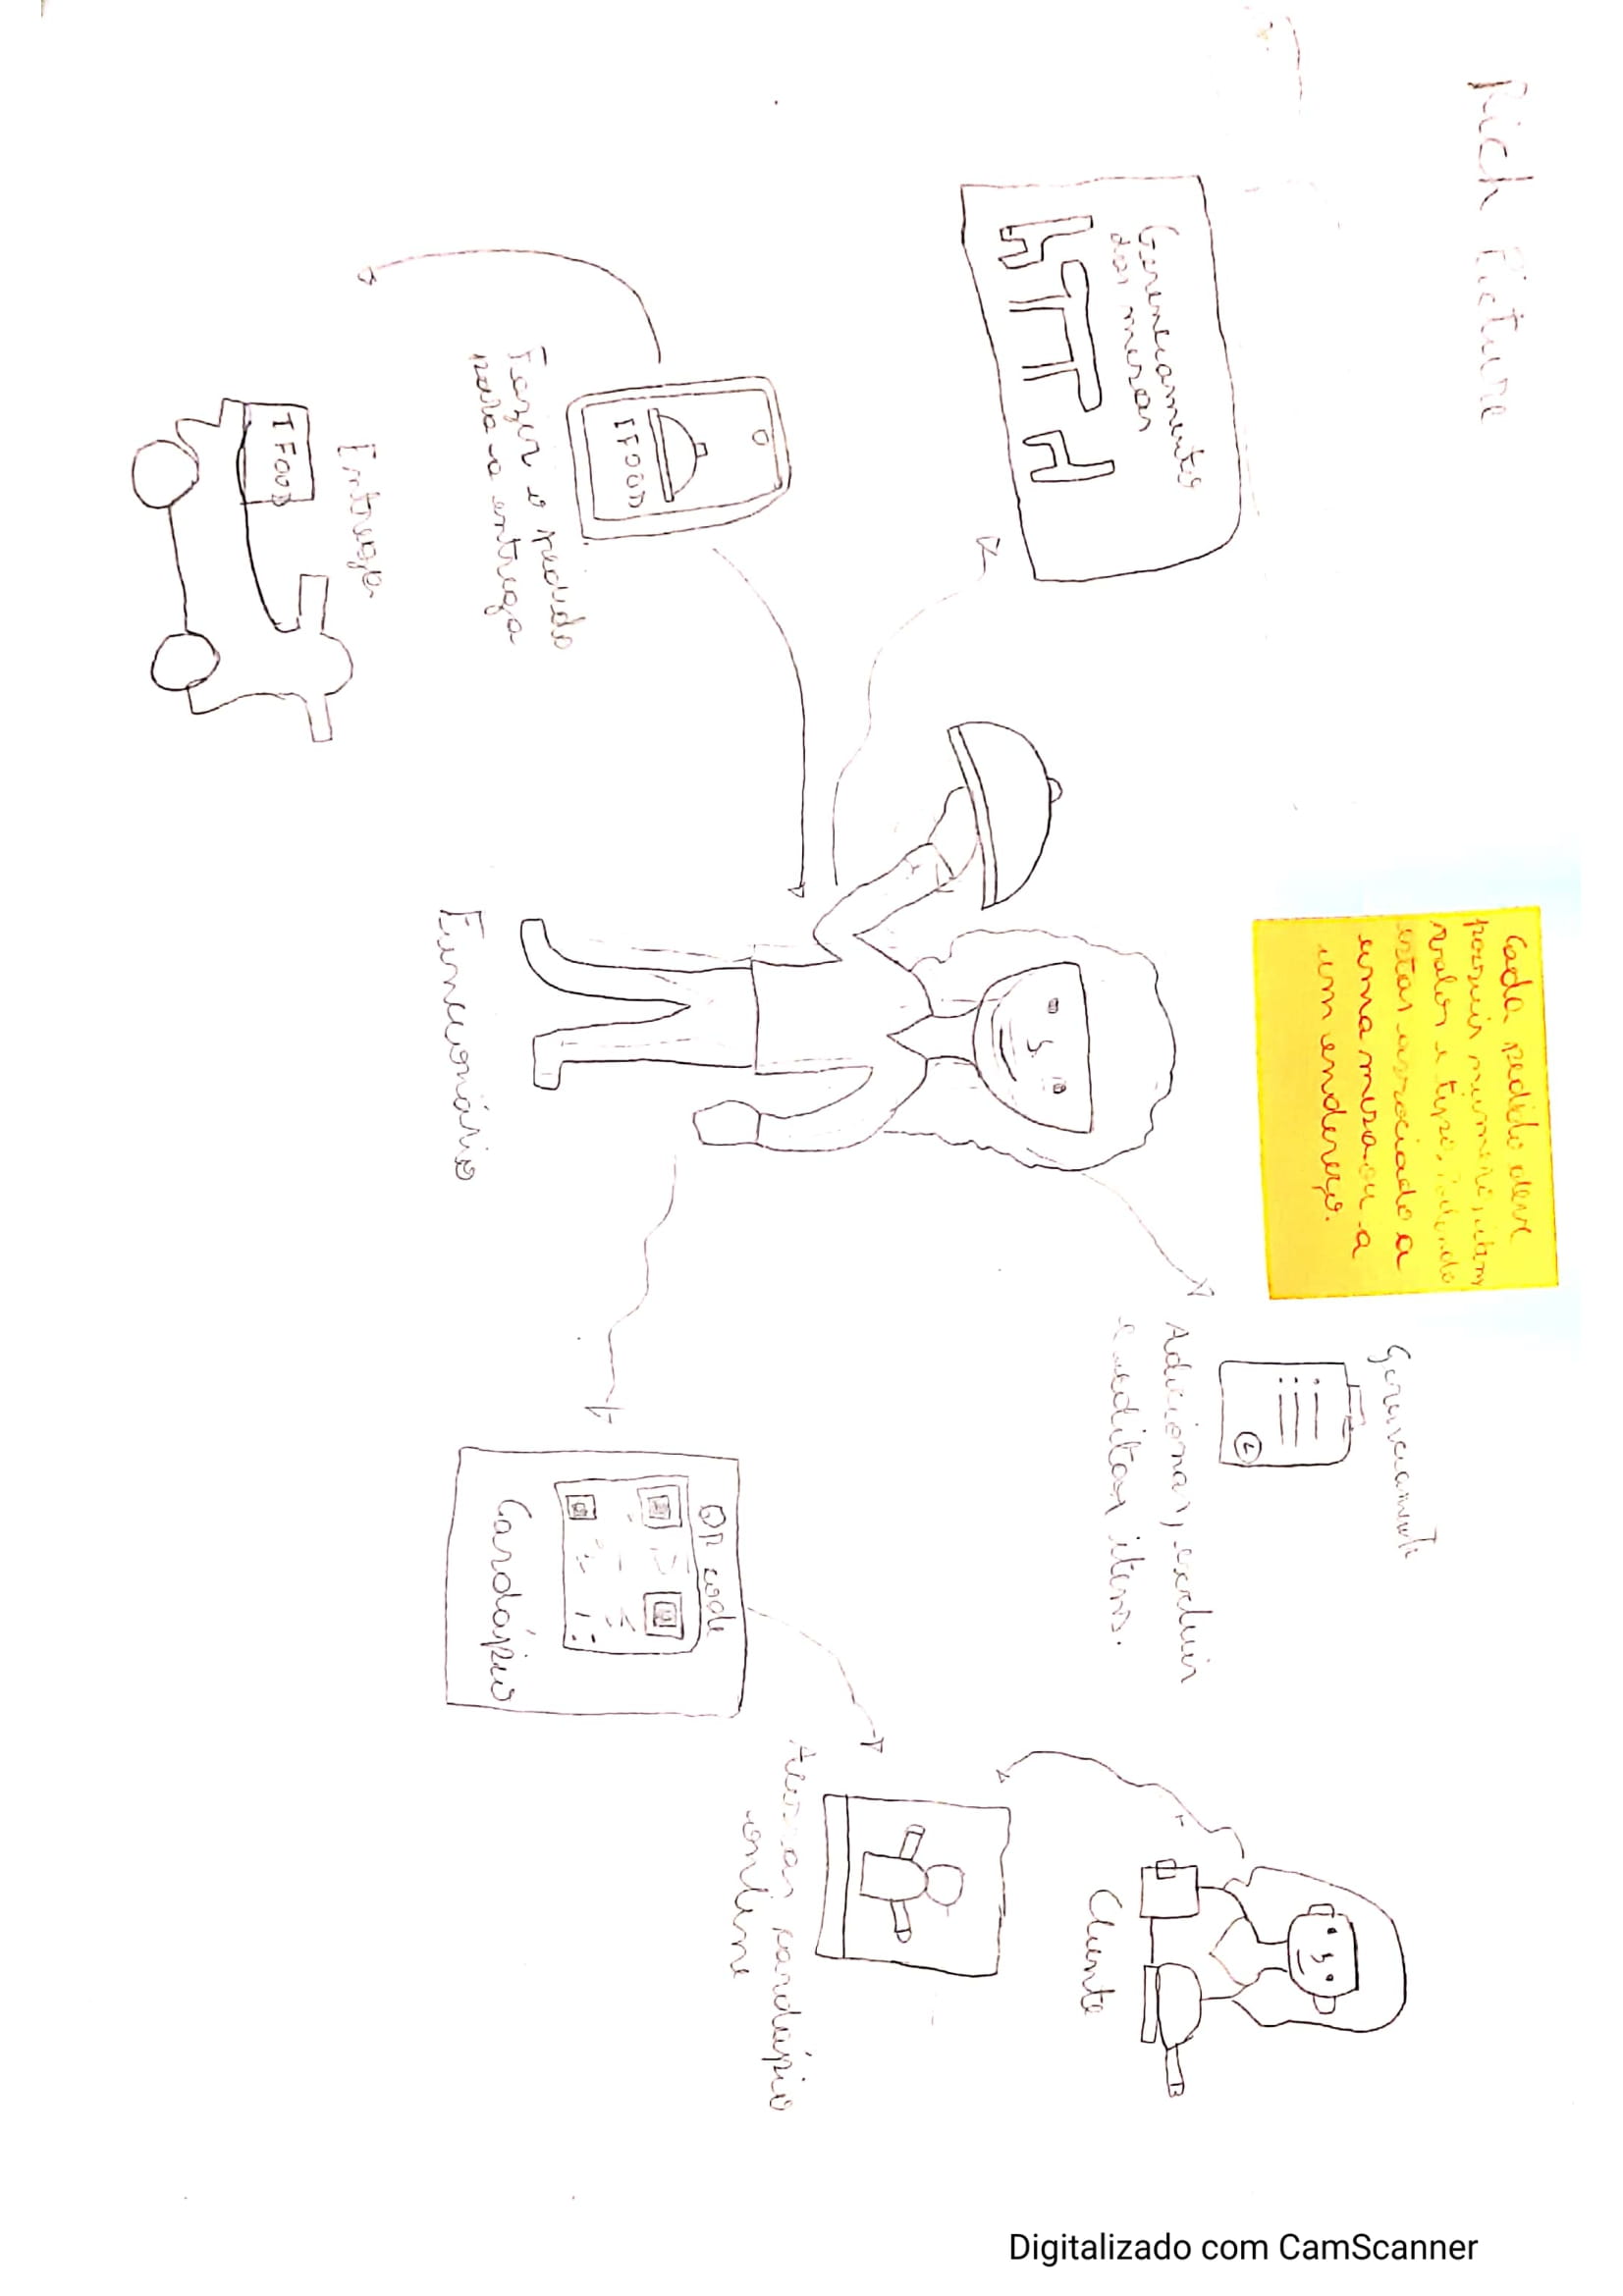 Rich Picture
Cada pedido deve
possuir numero, item
valor e tipo. Podendo
estar associado a
uma mesa ou a
um endereço.
Gerenciamento
Adicionar, excluir
e editar itens.
Cliente
Gerenciamento
das mesas
Acessar cardápio
online
QR code
Cardápio
IFOOD
Fazer o pedido
para a entrega
Funcionário
Entrega
IFOOD
Digitalizado com CamScanner